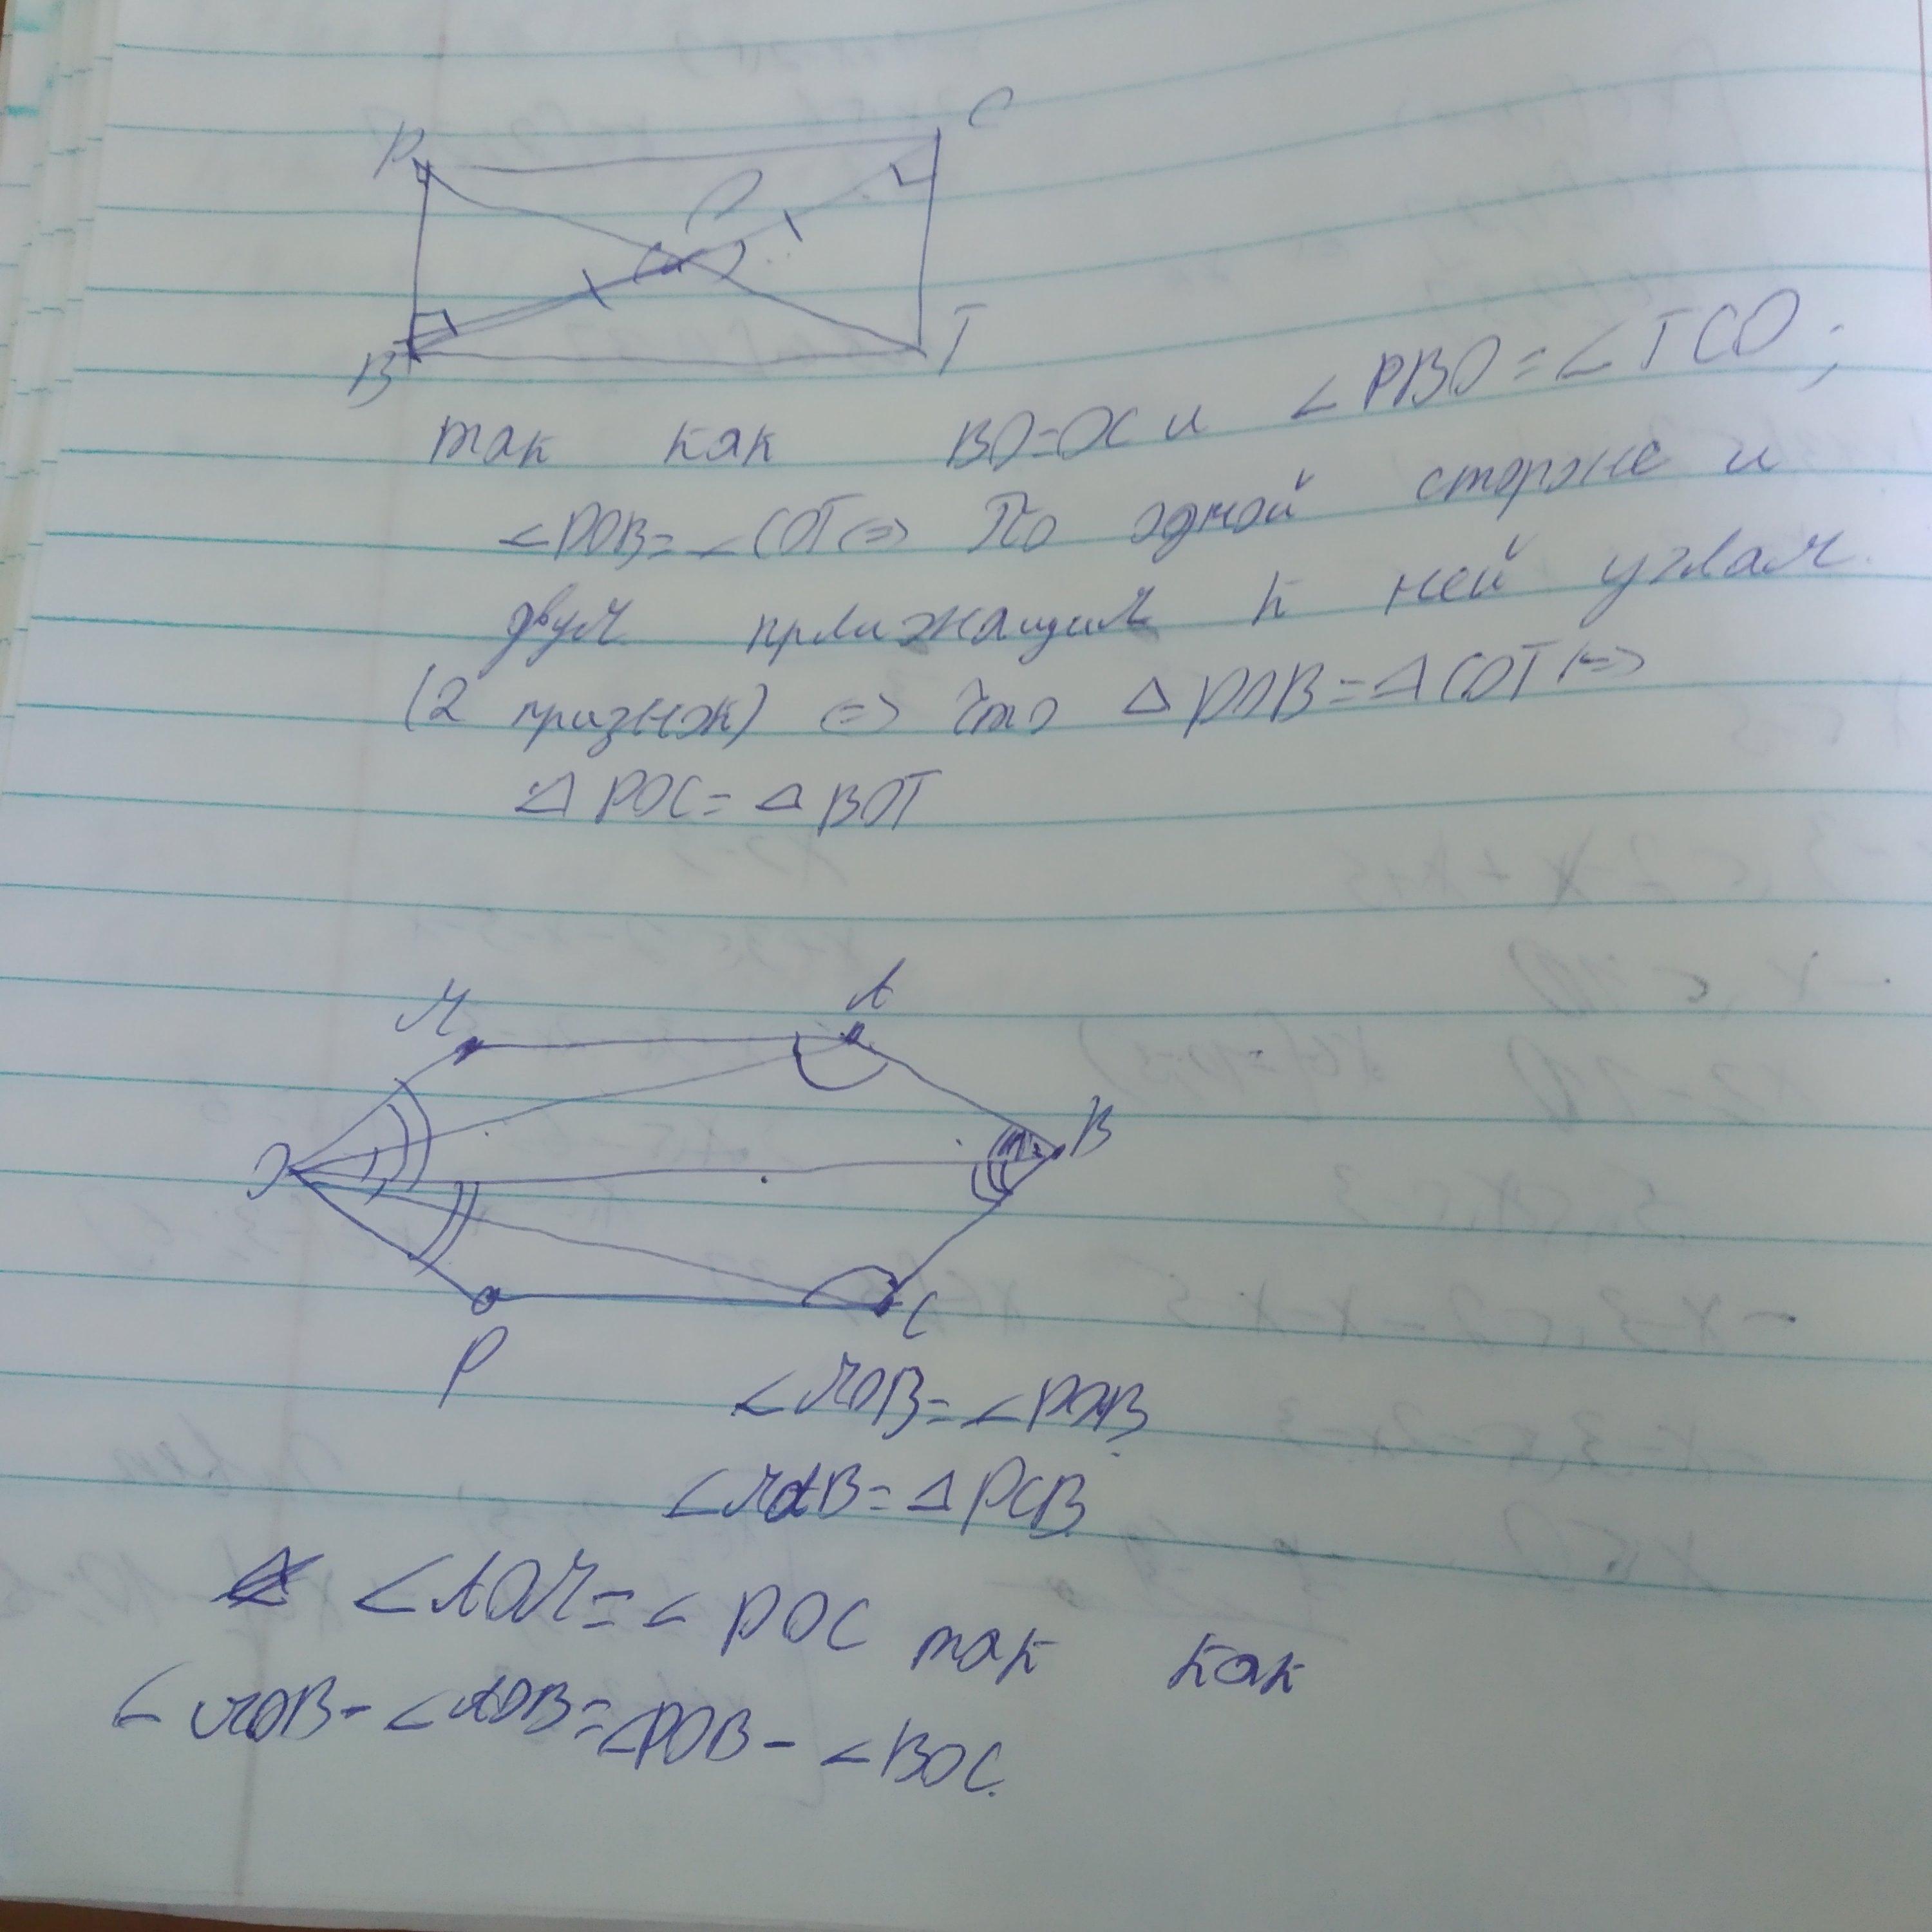 P
C
O
B
T
так как BO=OC и ∠PBO=∠TCO;
∠POB=∠COT<=> По одной стороне и
двум прлижащим к ней углам.
(2 признак) <=> что △POB=△COT<=>
△POC=△BOT
M
A
O
B
P
C
∠MOB=∠POB
∠MAB=△PCB
∠AOM=∠POC так как
∠MOB-∠AOB=∠POB-∠BOC.